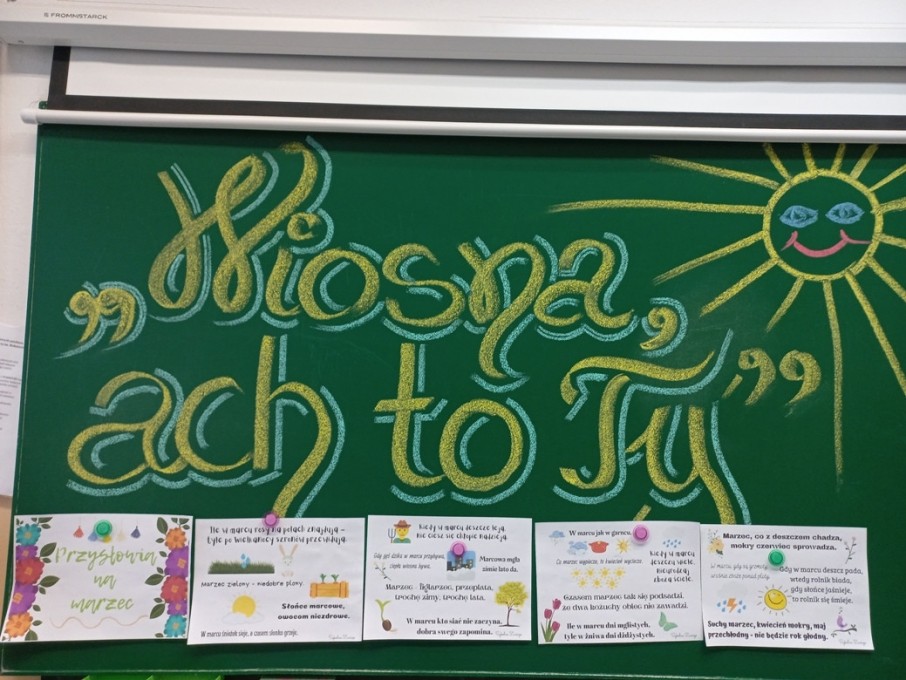 FROMNSTARCK
„Wiosna,
ach to Ty”
Przysłowia
na
marzec
Ile w marcu rosy na polach znajdują –
tyle po Wielkanocy szronów przewidują.
Marzec zielony – niedobre plony.
Słońce marcowe,
owocom niezdrowe.
W marcu śnieżek sieje, a czasem słonko grzeje.
Kiedy w marcu deszcze leją,
nie ciesz się chłopie nadzieją.
Gdy gęś dzika w marcu przybywa,
ciepła wiosna bywa.
Marcowa mgła
zimie łeb da.
Marzec – marzec, przeplata,
trochę zimy, trochę lata.
W marcu kto siać nie zaczyna,
dobra swego zapomina.
W marcu jak w garncu.
Co marzec wypiecze, to kwiecień wysiecze.
Kiedy w marcu
deszcz siecze,
zboża ściele.
Czasem marzec tak się podsadzi,
że dwa kożuchy oblec nie zawadzi.
Ile w marcu dni mglistych,
tyle w żniwa dni dżdżystych.
Marzec, co z deszczem chadza,
mokry czerwiec sprowadza.
Gdy w marcu deszcz pada,
wtedy rolnik biada,
gdy słońce jaśnieje,
to rolnik się śmieje.
Suchy marzec, kwiecień mokry, maj
przechłodny – nie będzie rok głodny.